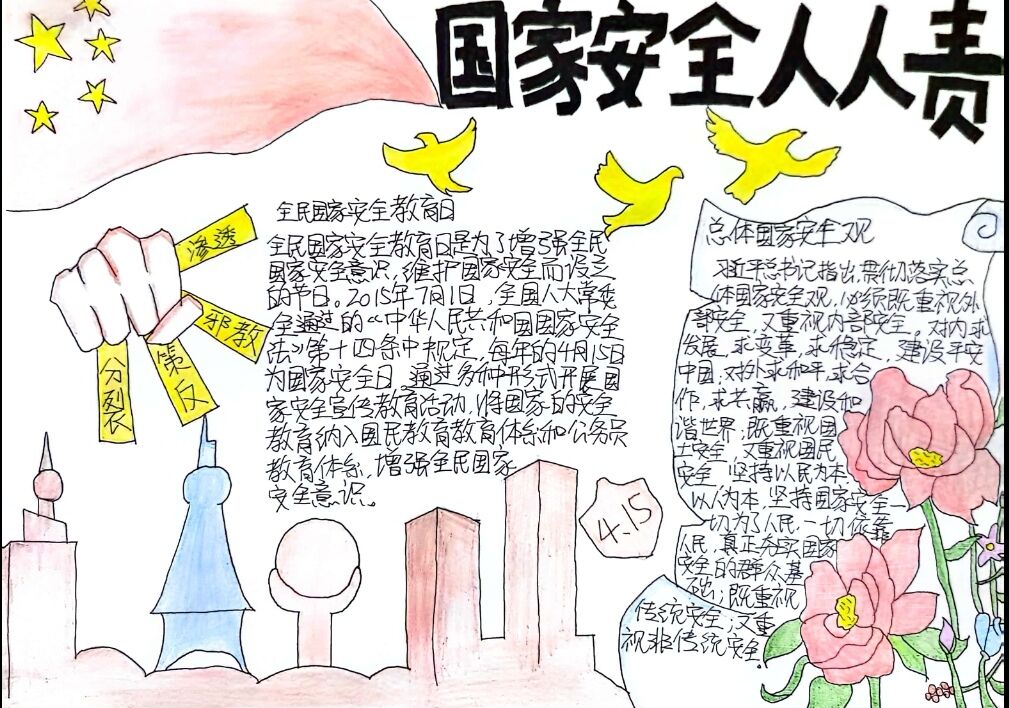 国家安全人人责
全民国家安全教育日
全民国家安全教育日是为了增强全民
国家安全意识，维护国家安全而设立
的节日。2015年7月1日，全国人大常委
会通过的“中华人民共和国国家安全
法》第十四条中规定，每年的4月15日
为国家安全日，通过多种形式开展国
家安全宣传教育活动，将国家的安全
教育纳入国民教育教育体系和公务员
教育体系，增强全民国家
安全意识。
渗透
邪教
策反
分裂
4.15
总体国家安全观
习近平总书记指出，贯彻落实总
体国家安全观，必须既重视外
部安全，又重视内部安全。对内求
发展，求变革，求稳定，建设平安
中国，对外求和平，求合
作，求共赢，建设和
谐世界；既重视国
土安全，又重视国民
安全，坚持以民为本，
以人为本，坚持国家安全
一切为了人民，一切依靠
人民，真正夯实国家
安全的群众基
础；既重视
传统安全，又重
视非传统安全。